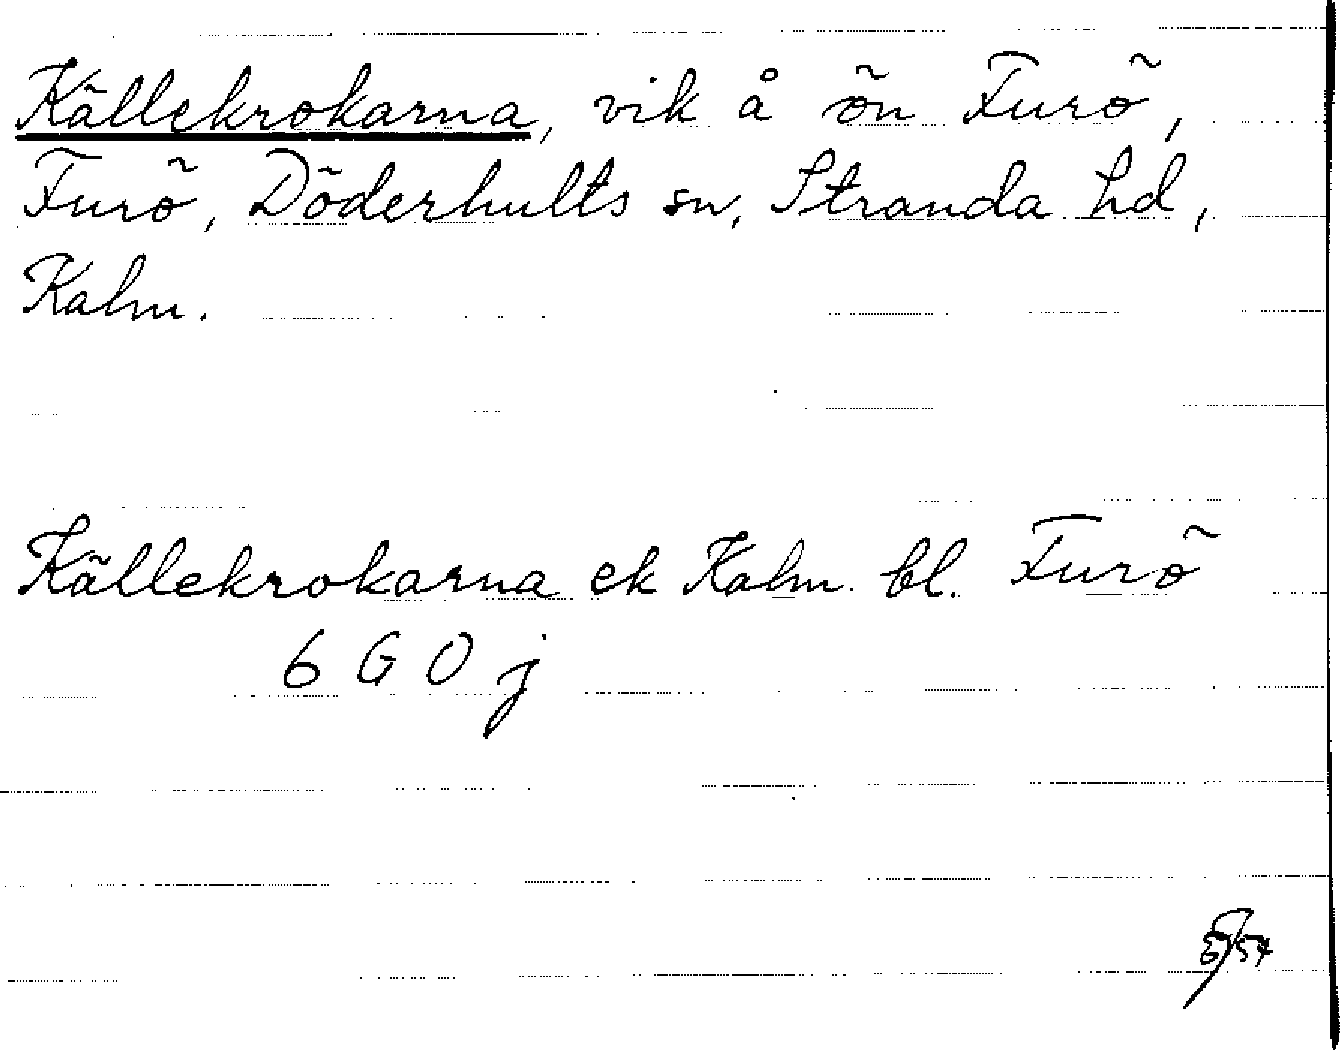 Källekrokarna, vik å ön Furö,
Furö, Döderhults sn, Stranda hd,
Kalm.
Källekrokarna ek Kalm. bl. Furö
6 G 0 j